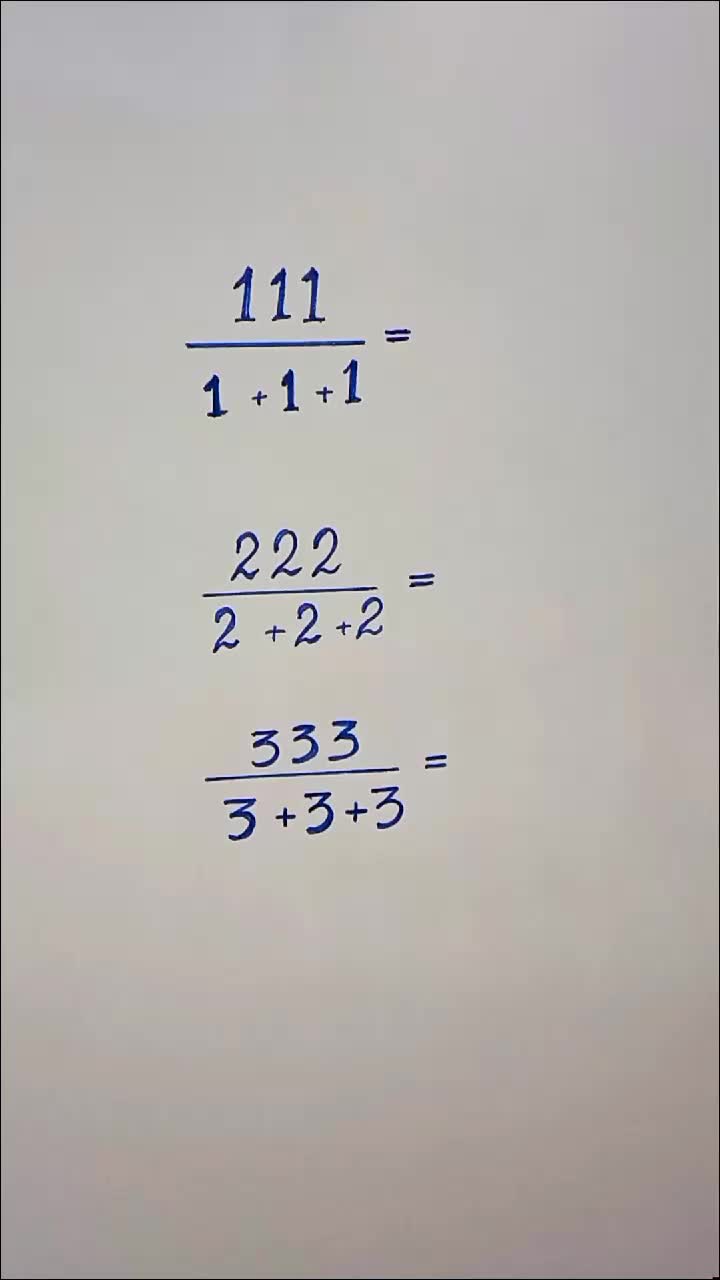 111
1 + 1 + 1 =
222
2 + 2 + 2 =
333
3 + 3 + 3 =